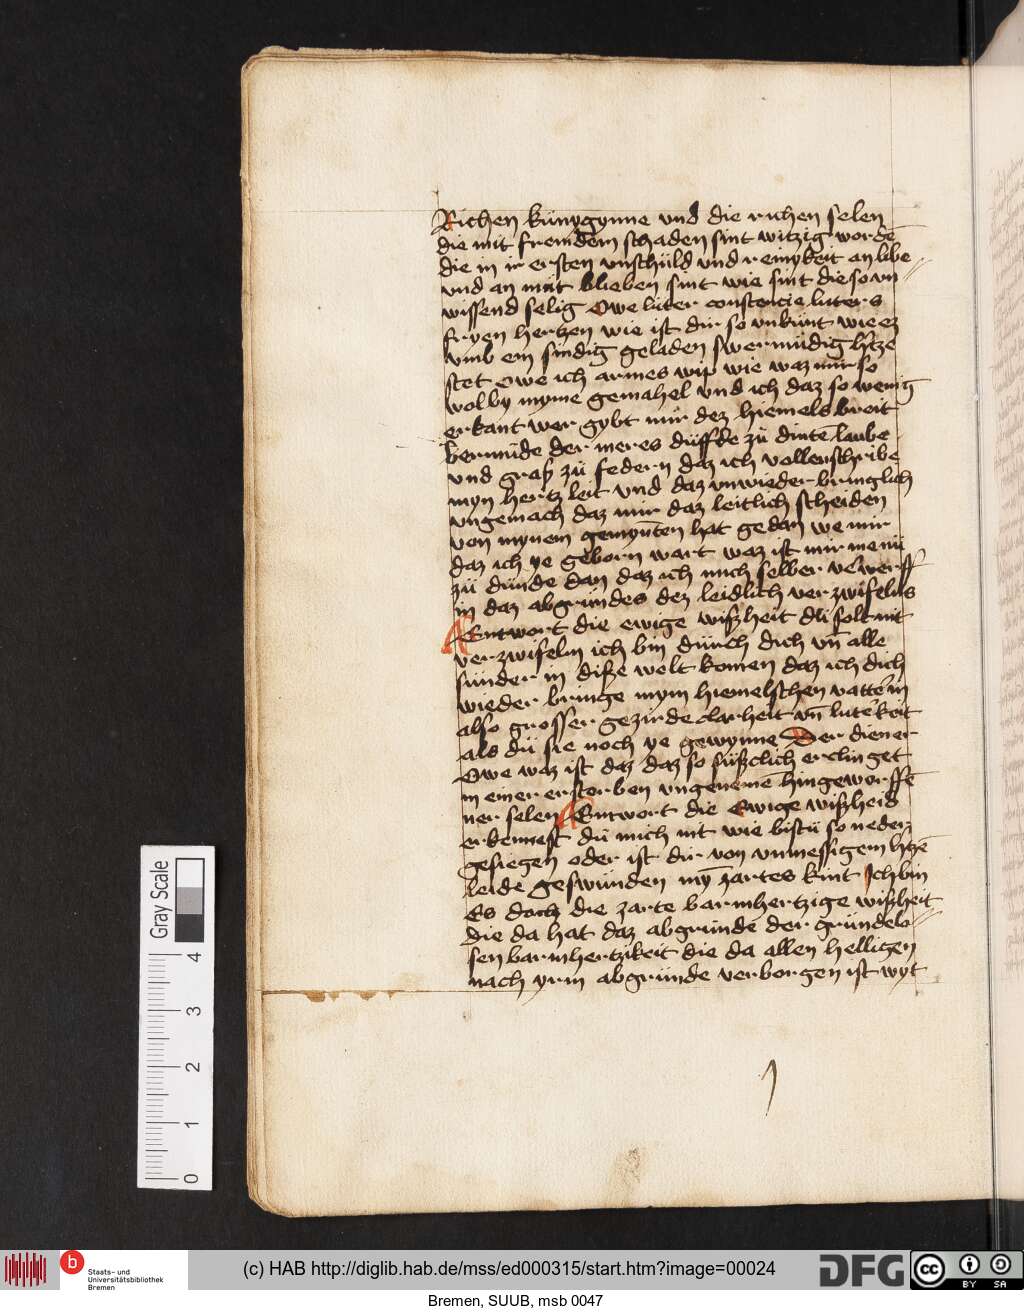 Richen künygynne vnd die richen selen
die mit fremdem schaden sint witzig wordē
die in ir ersten vnschüld vnd reinykeit an libe
vnd an müt blieben sint wie sint die so vn
wissend selig Owe luter consciencie luters
fryen hertzen wie ist dir so vnkünt wie ez
vmb ein sündig geladen swermüdig htze
stet Owe ich armes wip wie waz mir so
wol by myme gemahel vnd ich daz so wenig
erkant wer gybt mir dez hiemels breit
bermüde der meres düffde zü dintē laube
vnd graß zü federn daz ich vollenschribe
myn hertz leit vnd daz vnwiederbringlich
vngemach daz mir daz leitlich scheiden
von mynem gemynten hat gedan we mir
daz ich ye geborn wart waz ist mir me nü
zü dünde dan daz ich mich selber v'werff
in daz abgründes dez leidlich verzwifelns
Entwort die ewige wißheit dü solt nit
verzwifeln ich bin dürch dich vn̄ alle
sünder in diße welt komen daz ich dich
wieder bringe mym hiemelschen vatter in
also grosser gezirde clarheit vn̄ luterkeit
als dü sie noch ye gewynne Der diener
Owe waz ist daz daz so süßclich erclinget
in einer erstorben vngenemē hingeworffē
ner selen Entwort die Ewige wißheid
erkennest dü mich nit wie bistü so neder
gesiegen oder ist dir von vnmessigem htzē
leide geswünden my̅ zartes kint Ich bin
Es doch die zarte barmhertzige wißheit
die da hat daz abgründe der gründelo
sen barmhertzikeit die da allen helligen
nach yrm abgründe verborgen ist wyt
Gray Scale
4
3
2
1
0
b
Staats- und
Universitätsbibliothek
Bremen
(c) HAB http://diglib.hab.de/mss/ed000315/start.htm?image=00024
DFG
cc BY SA
Bremen, SUUB, msb 0047